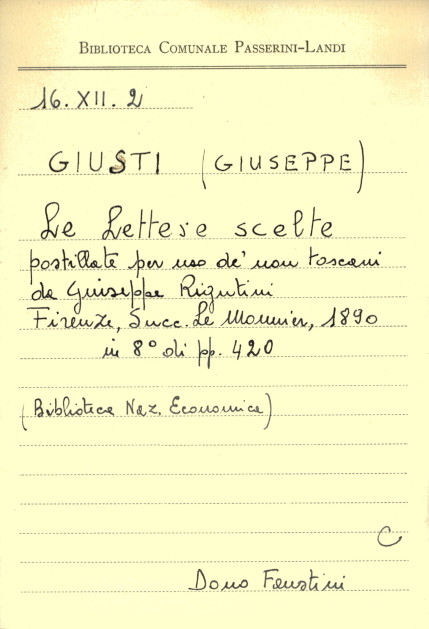 BIBLIOTECA COMUNALE PASSERINI-LANDI
16. XII. 2
GIUSTI (GIUSEPPE)
Le Lettere scelte
postillate per uso de' non toscani
da Giuseppe Rigutini
Firenze, Succ. Le Monnier, 1890
in 8° di pp. 420
(Biblioteca Naz. Economica)
C
Dono Faustini